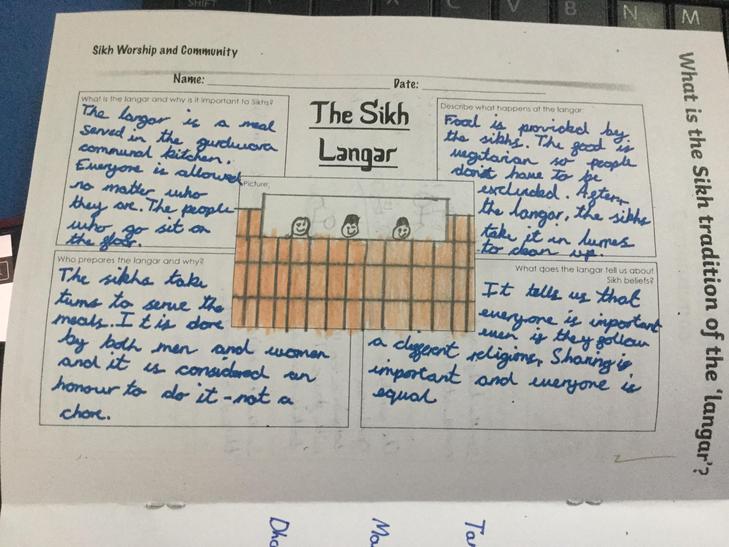 SHIFT
C
V
B
N
M
Sikh Worship and Community
Name:
Date:
What is the langar and why is it important to Sikhs?
The langar is a meal
served in the gurdwara
communal kitchen.
Everyone is allowed
no matter who
they are. The people
who go sit on
the floor.
The Sikh
Langar
Describe what happens at the langar:
Food is provided by
the sikhs. The food is
vegitarian so people
don't have to be
excluded. After,
the langar, the sikhs
take it in turns
to clean up.
Picture:
Who prepares the langar and why?
The sikhs take
turns to serve the
meals. It is done
by both men and women
and it is considered an
honour to do it - not a
chore.
What does the langar tell us about
Sikh beliefs?
It tells us that
everyone is important
even if they follow
a different religions, Sharing is
important and everyone is
equal
What is the Sikh tradition of the 'langar'?
Dha
Ma
Ta